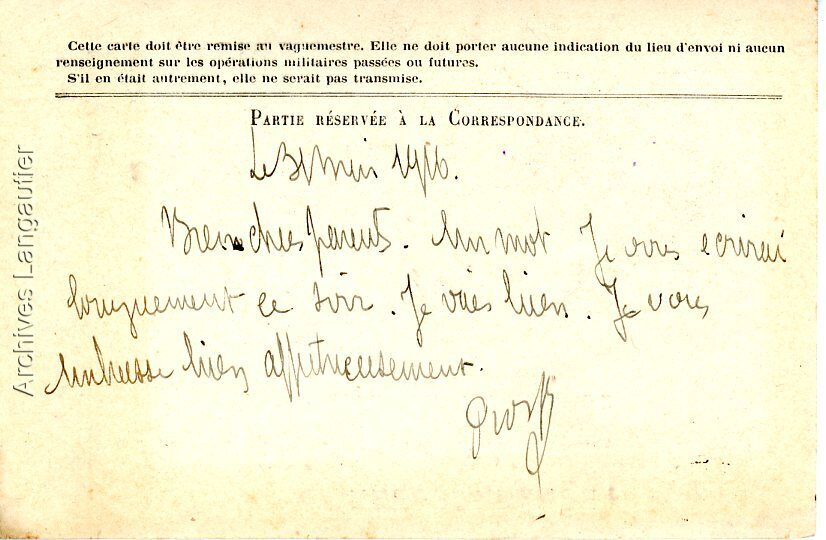 Cette carte doit être remise au vaguemestre. Elle ne doit porter aucune indication du lieu d'envoi ni aucun
renseignement sur les opérations militaires passées ou futures.
S'il en était autrement, elle ne serait pas transmise.
PARTIE RÉSERVÉE À LA CORRESPONDANCE.
Le 31 Mai 1916.
Bien chers parents. Un mot Je vous ecrirai
longuement ce soir. Je vais bien. Je vous
embrasse bien affectueusement.
Archives Langautier